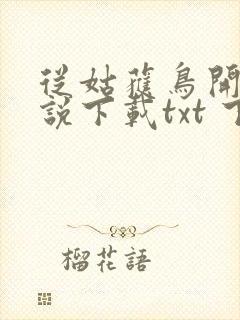 從姑獲鳥開
說下載txt 下
榴花語